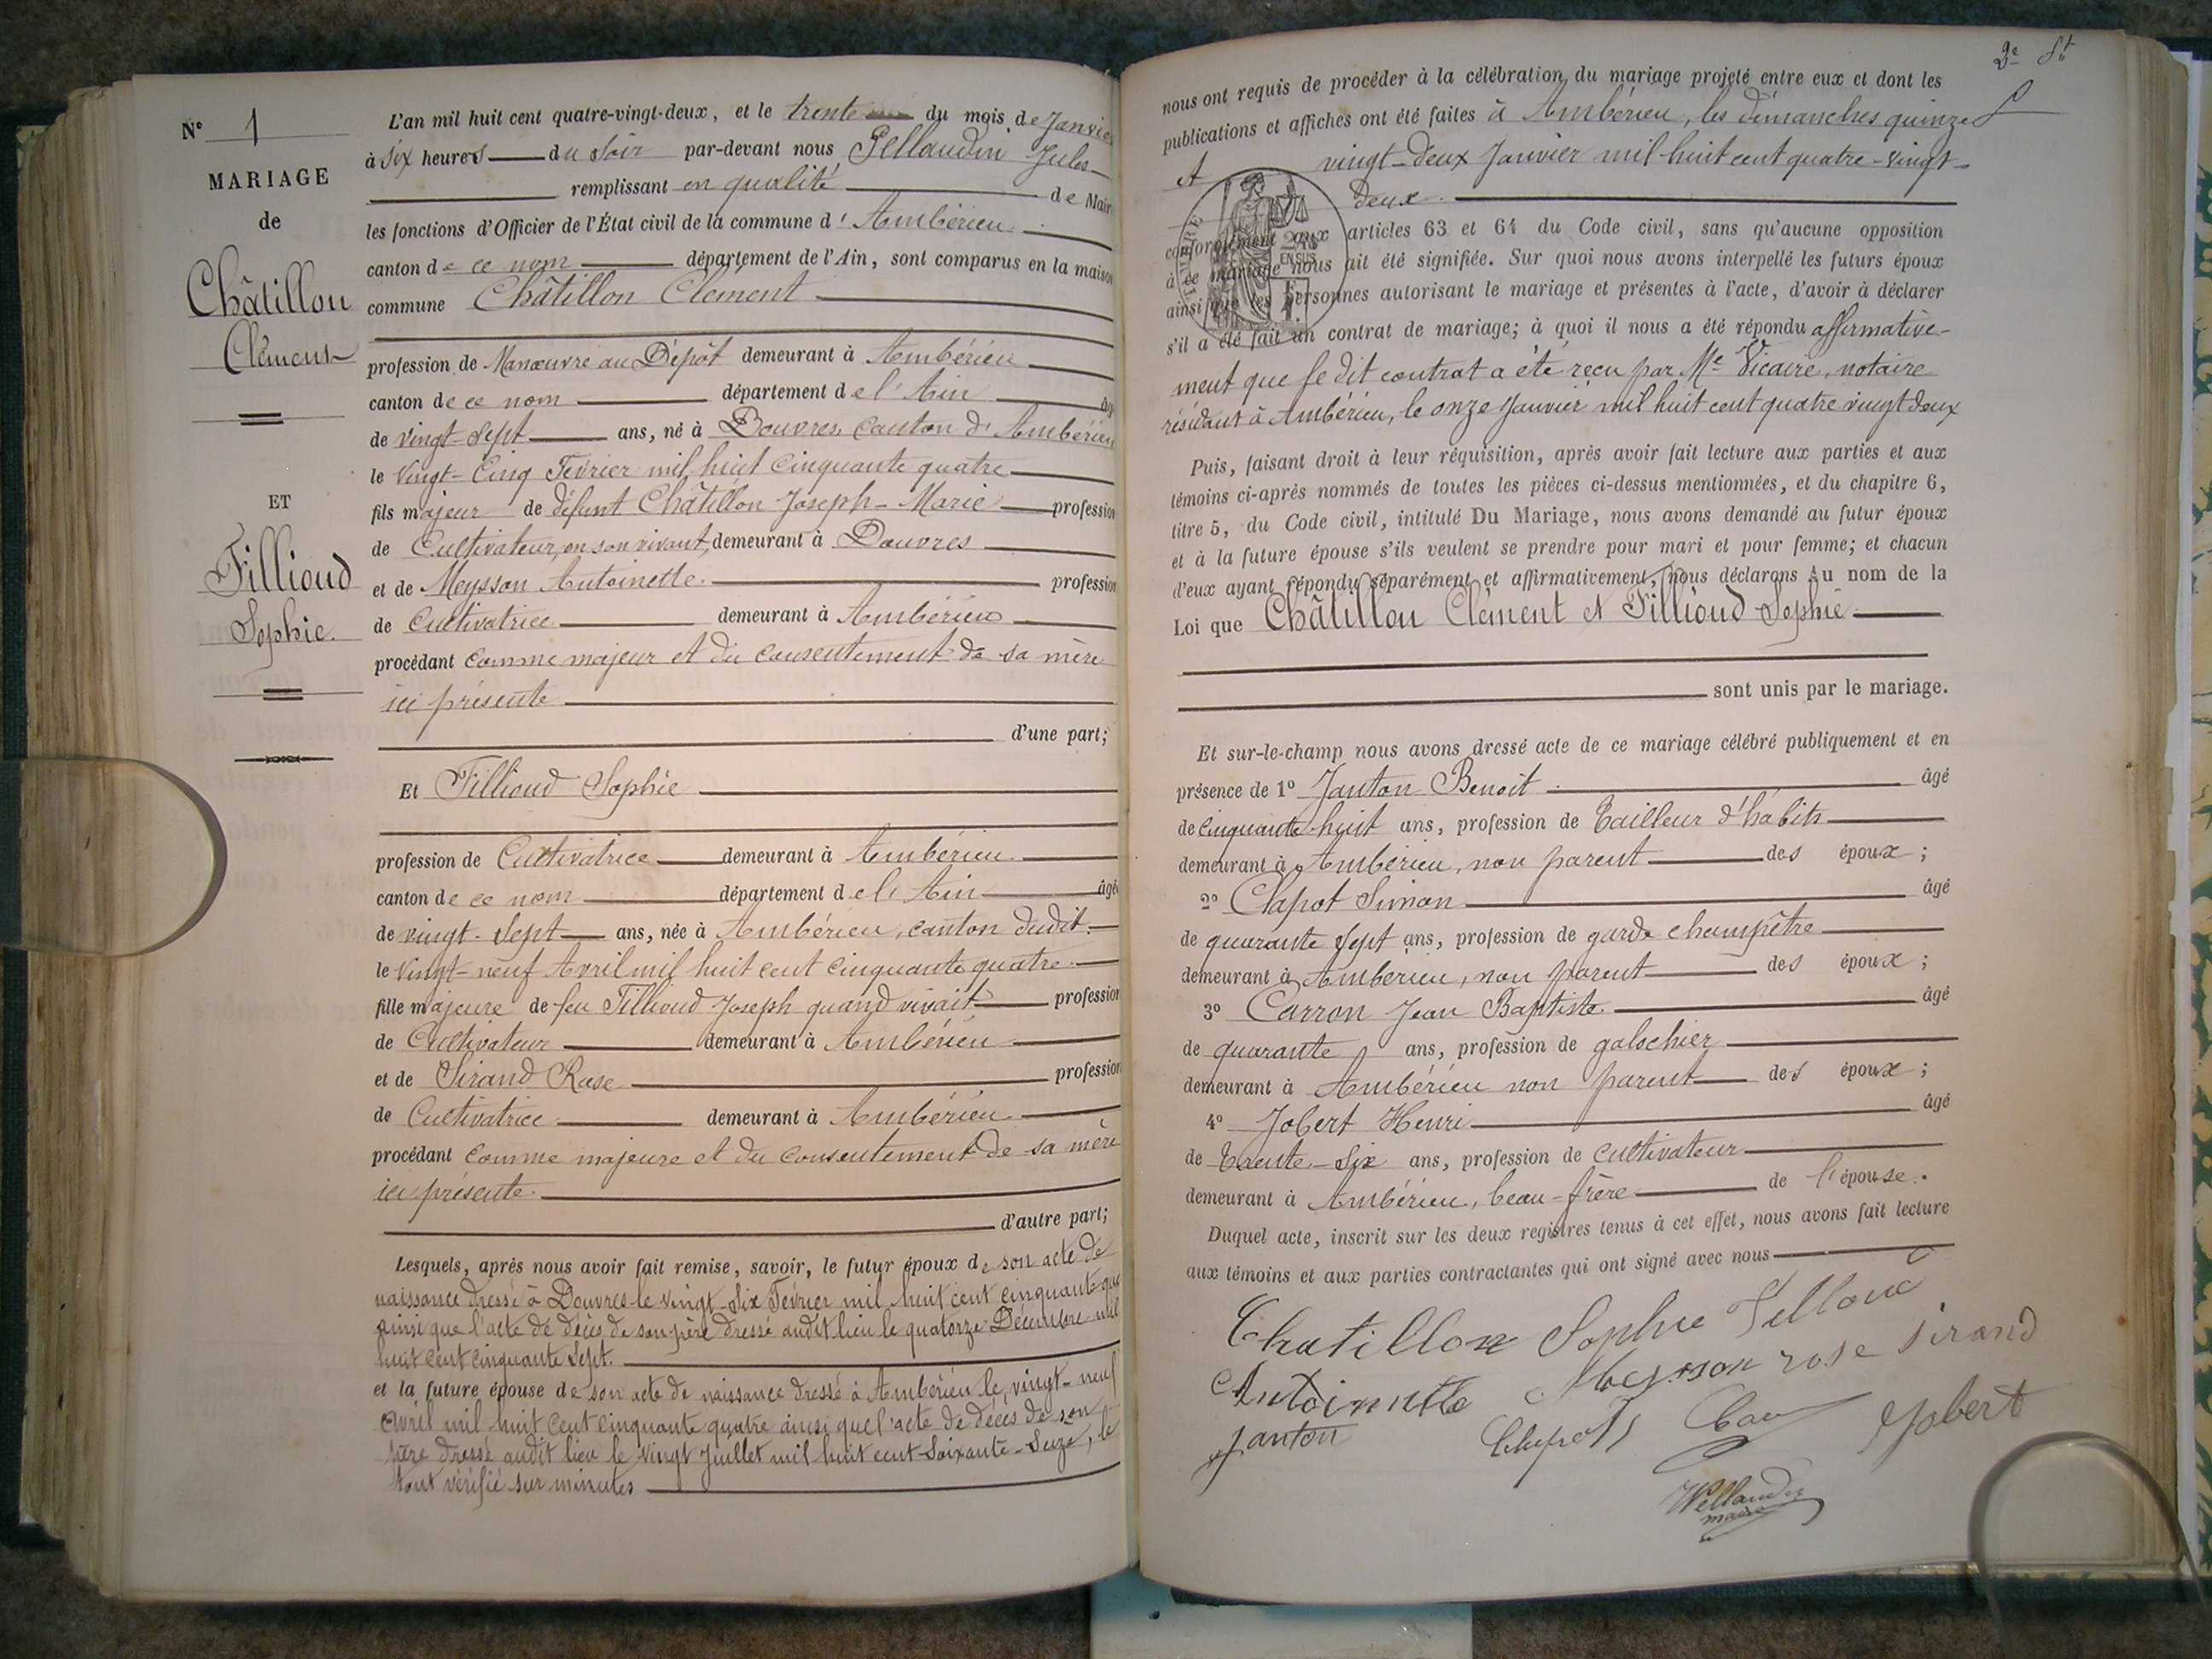 N° 1
MARIAGE
de
Châtillon
Clément
ET
Fillioud
Sophie.
L'an mil huit cent quatre-vingt-deux, et le trente du mois de Janvier
à six heures du soir par-devant nous Pellaudin Jules
remplissant en qualité de Maire
les fonctions d'Officier de l'État civil de la commune d'Ambérieu
canton de ce nom département de l'Ain, sont comparus en la maison
commune Châtillon Clément
profession de Manœuvre au Dépôt demeurant à Ambérieu
canton de ce nom département de l'Ain âgé
de vingt-sept ans, né à Douvres, Canton d'Ambérieu
le vingt-Cinq Février mil huit Cinquante quatre
fils majeur de défunt Châtillon Joseph-Marie profession
de Cultivateur, en son vivant, demeurant à Douvres
et de Meysson Antoinette. profession
de Cultivatrice demeurant à Ambérieu
procédant comme majeur et du consentement de sa mère
ici présente
d'une part;
Et Fillioud Sophie
profession de Cultivatrice demeurant à Ambérieu
canton de ce nom département de l'Ain âgée
de vingt-sept ans, née à Ambérieu, canton dudit
le vingt-neuf Avril mil huit cent cinquante quatre
fille majeure de feu Fillioud Joseph quand vivait profession
de Cultivateur demeurant à Ambérieu
et de Sirand Rose profession
de Cultivatrice demeurant à Ambérieu
procédant comme majeure et du consentement de sa mère
ici présente.
d'autre part;
Lesquels, après nous avoir fait remise, savoir, le futur époux de son acte de
naissance dressé à Douvres le vingt-six Février mil huit cent cinquante-qua
ainsi que l'acte de décès de son père dressé audit lieu le quatorze Décembre mil
huit cent cinquante sept.
et la future épouse de son acte de naissance dressé à Ambérieu le, vingt-neuf
avril mil huit cent cinquante quatre ainsi que l'acte de décès de son
père dressé audit lieu le vingt Juillet mil huit cent soixante-seize, le
tout vérifié sur minutes
2e
nous ont requis de procéder à la célébration du mariage projeté entre eux et dont les
publications et affiches ont été faites à Ambérieu, les dimanches quinze
et vingt-deux Janvier mil huit cent quatre-vingt-
deux.
conformément aux articles 63 et 64 du Code civil, sans qu'aucune opposition
à ce mariage nous ait été signifiée. Sur quoi nous avons interpellé les futurs époux
ainsi que les personnes autorisant le mariage et présentes à l'acte, d'avoir à déclarer
s'il a été fait un contrat de mariage; à quoi il nous a été répondu affirmative-
ment que le dit contrat a été reçu par Me Vicaire, notaire
résidant à Ambérieu, le onze Janvier mil huit cent quatre vingt deux
Puis, faisant droit à leur réquisition, après avoir fait lecture aux parties et aux
témoins ci-après nommés de toutes les pièces ci-dessus mentionnées, et du chapitre 6,
titre 5, du Code civil, intitulé Du Mariage, nous avons demandé au futur époux
et à la future épouse s'ils veulent se prendre pour mari et pour femme; et chacun
d'eux ayant répondu séparément et affirmativement, nous déclarons Au nom de la
Loi que Châtillon Clément et Fillioud Sophie
sont unis par le mariage.
Et sur-le-champ nous avons dressé acte de ce mariage célébré publiquement et en
présence de 1° Janton Benoit âgé
de cinquante-huit ans, profession de Tailleur d'habits
demeurant à Ambérieu, non parent des époux;
2° Clapot Simon âgé
de quarante sept ans, profession de garde champêtre
demeurant à Ambérieu, non parent des époux;
3° Carron Jean Baptiste. âgé
de quarante ans, profession de galochier
demeurant à Ambérieu non parent des époux;
4° Jobert Henri âgé
de Trente-six ans, profession de cultivateur
demeurant à Ambérieu, beau-frère de l'épouse.
Duquel acte, inscrit sur les deux registres tenus à cet effet, nous avons fait lecture
aux témoins et aux parties contractantes qui ont signé avec nous
Chatillon Sophie Fillioud
Antoinette Meysson rose Sirand
Janton Clapot Jobert
Pellaudin
maire